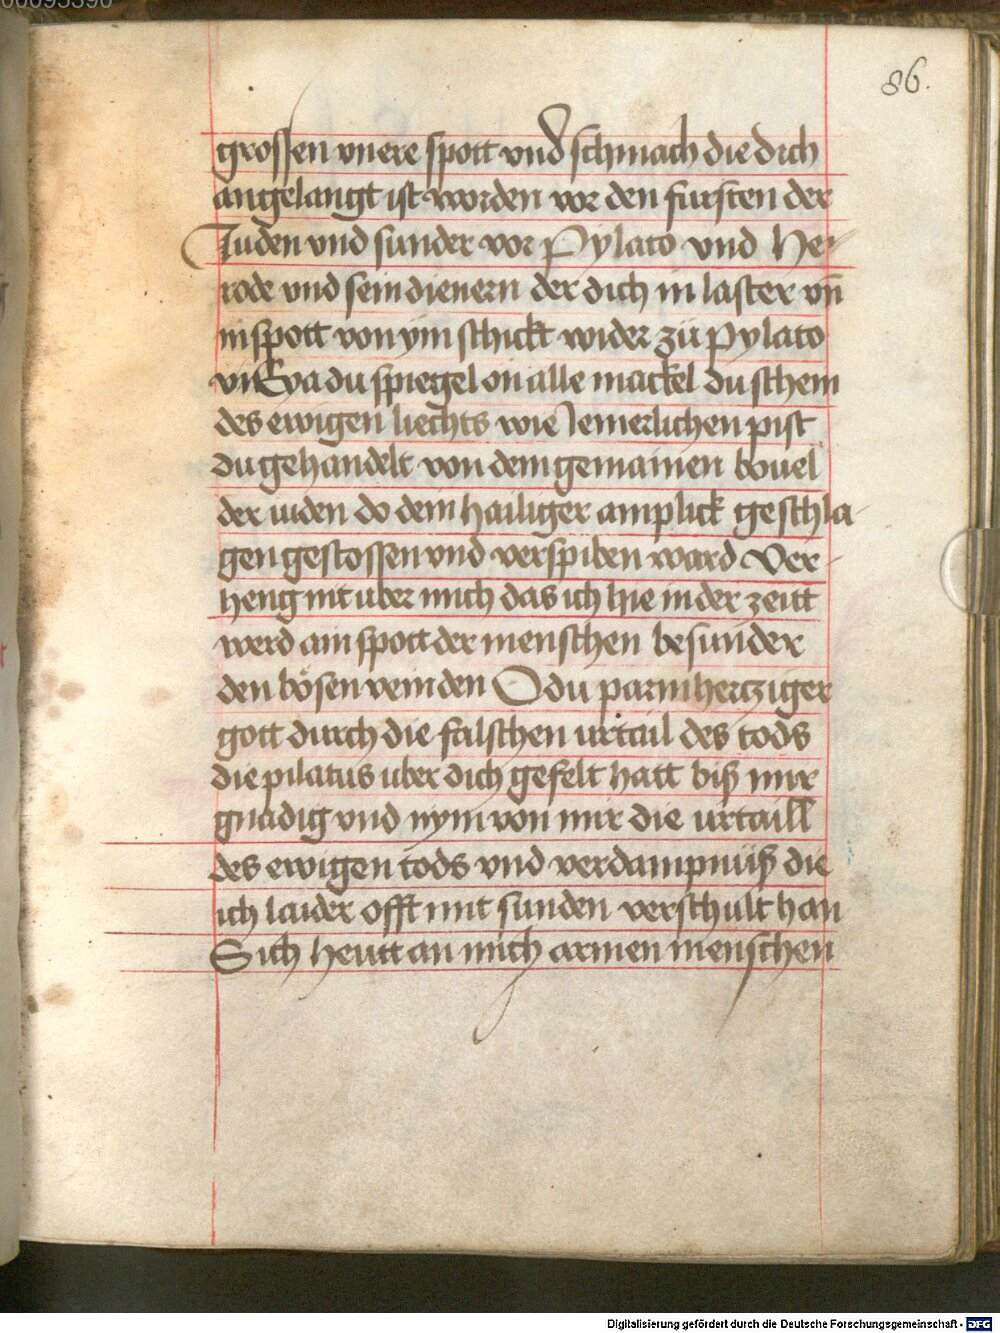 00095390
86.
grossen vnere spott vnd schmach die dich
angelangt ist worden vor den fursten der
Juden vnd sunder vor Pylato vnd He-
rode vnd sein dienern der dich in laster vñ
in spott von ym schickt wider zü Pylato
vñ Eya du spiegel on alle mackel du schein
des ewigen liechts wie Jemerlichen pist
du gehandelt von dem gemainen bouel
der iuden do dein hailiger amplick geschla-
gen gestossen vnd verspiben ward Ver-
heng nit uber mich das ich hie in der zeitt
werd ain spott der menschen besunder
den bösen veinden O du parmhertziger
gott durch die falschen urtail des tods
die pilatus uber dich gefelt hatt biß mir
gnadig vnd nym von mir die urtaill
des ewigen tods vnd verdampnüß die
ich laider offt mit sunden verschult han
Sich heutt an mich armen menschen
Digitalisierung gefördert durch die Deutsche Forschungsgemeinschaft - DFG